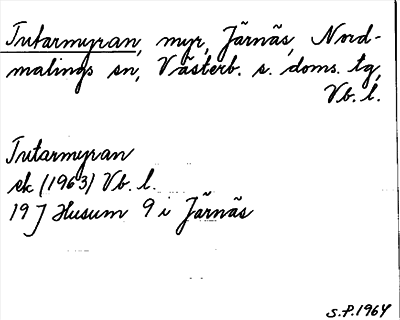 Tutarmyran, myr, Järnäs, Nord-
malings sn, Västerb. s. doms. tg,
Vb. l.
Tutarmyran
ek (1963) Vb. l.
19 J Husum 9 i Järnäs
S.P. 1964